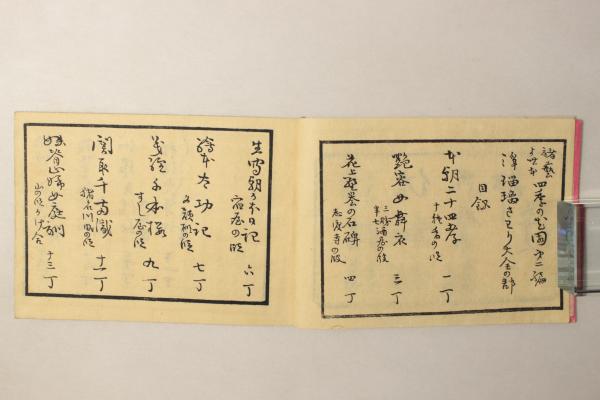 諸藝 四季の花園 第二編
よせ本
浄瑠璃さわり大全の部
目録
本朝二十四孝 一丁
十種香の段
艶容女舞衣 三丁
三勝半七 酒屋の段
花上野誉の石碑 四丁
志渡寺の段
生写朝がほ日記 六丁
宿屋の段
絵本太功記 七丁
尼ヶ崎の段
義経千本桜 九丁
すし屋の段
関取千両幟 十一丁
猪名川内の段
妹脊山婦女庭訓 十三丁
山の段かけ合